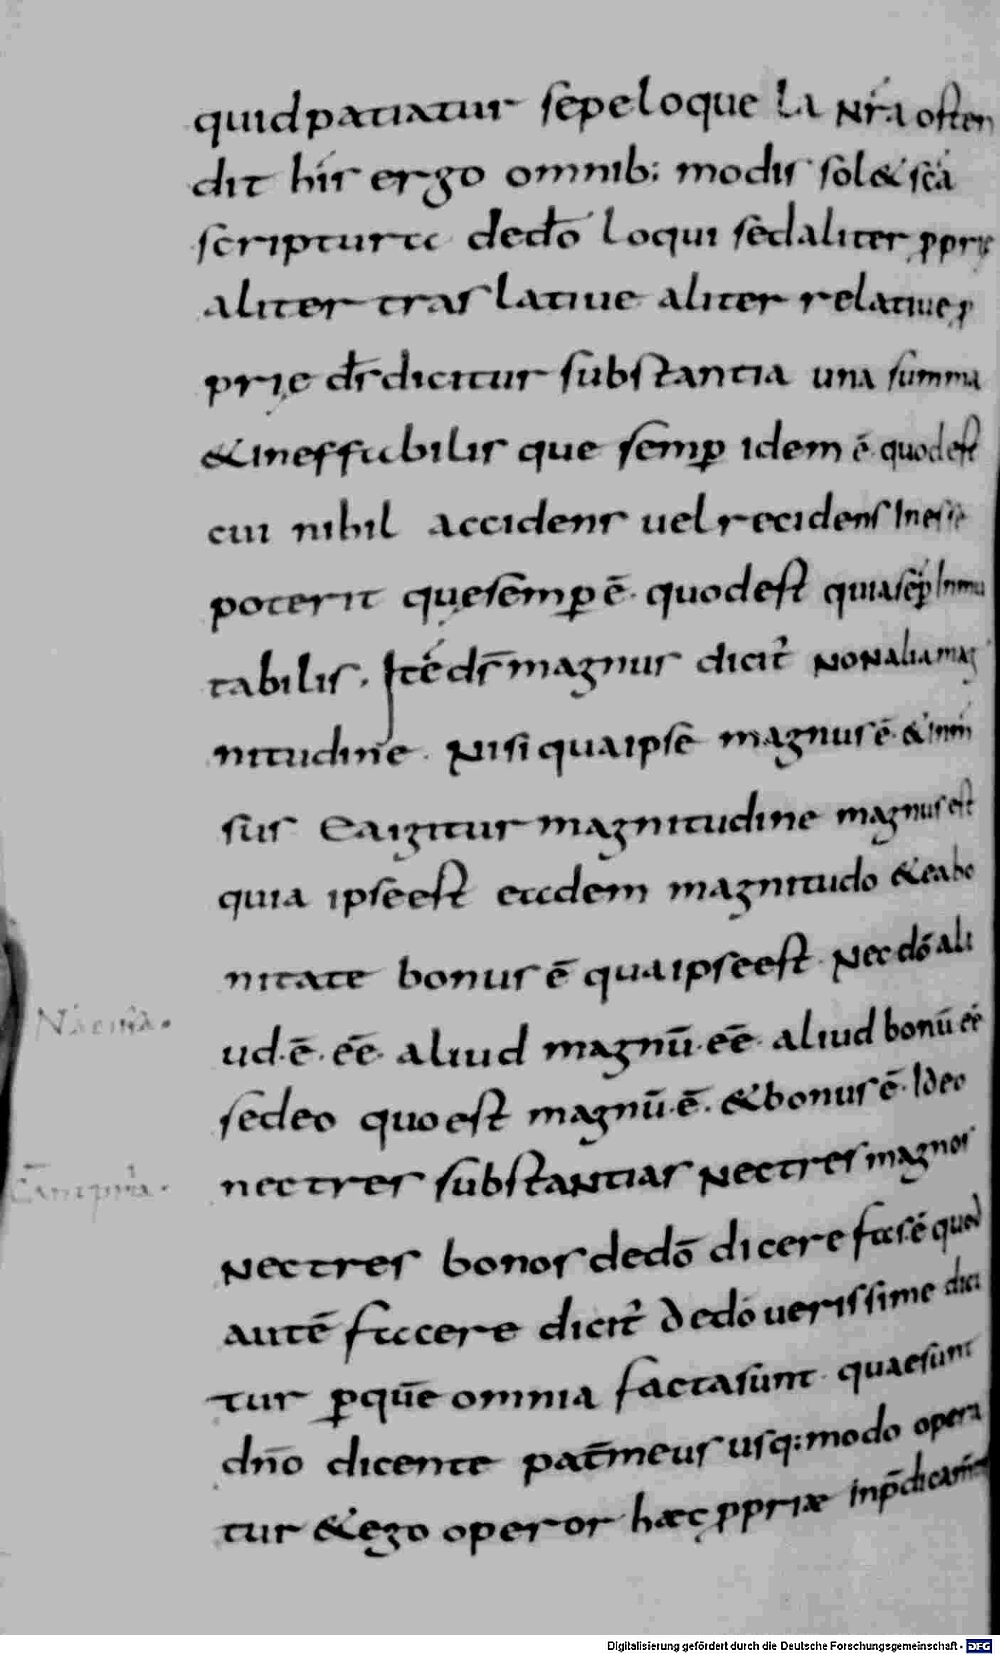 quid patiatur sepe loque la nr̄a osten
dit hís ergo omnib; modis sol& scā
scripturа de dō loqui sed aliter ꝓprię
aliter traslatiue aliter relatiue ꝓ
prię d̄s dicitur substantia una summa
& ineffabilis que semꝑ idem ē quod est
cui nihil accidens uel recidens Inesse
poterit quę semꝑ ē. quod est quia sēꝑ Inmu
tabilis. Itē d̄s magnus dicit᷑ non alia mag
nitudine. Nisi qua ipse magnus ē. & inm̄
sus Ea igitur magnitudine magnus est
quia ipse est eadem magnitudo & ea bo
nitate bonus ē qua ipse est. Nec dō ali
ud. ē. eē. aliud magnū. eē. aliud bonū eē
sed eo quo est magnū. ē. & bonus ē. Ideo
nec tres substantias nec tres magnos
nec tres bonos de dō dicere fas. ē quod
autē facere dicit᷑ de dō uerissime dici
tur ꝑ quē omnia facta sunt. quae sunt
dn̄o dicente pat̄ meus usq; modo opera
tur & ego operor hæc ꝓpriæ in p̄dicam̄